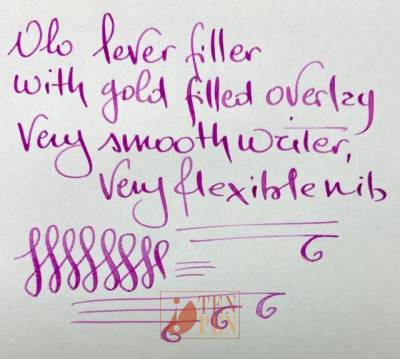 Nlo lever filler
with gold filled overlay
Very smooth writer,
Very flexible nib
TEN
PEN